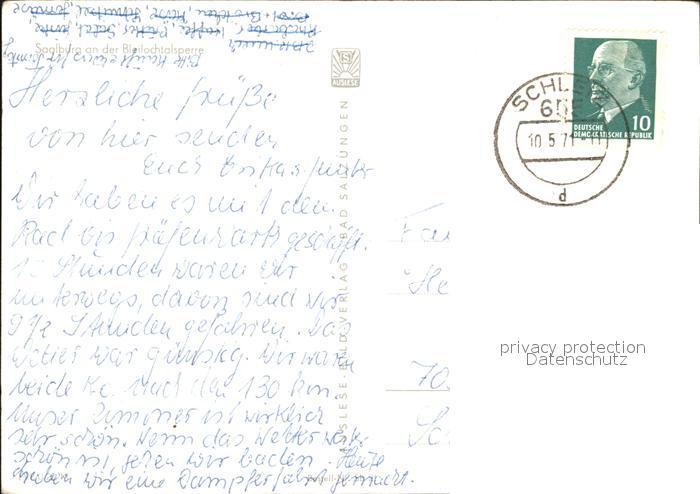 Saalburg an der Bleilochtalsperre
AUSLESE
Herzliche Grüße
von hier senden
Euch
Wir haben es mit dem
Rad bis Gräfenwarth geschafft.
12 Stunden waren wir
unterwegs, davon sind wir
9 1/2 Stunden gefahren. Das
Wetter war günstig. Wir waren
beide k.o. nach den 130 km.
Unser Zimmer ist wirklich
sehr schön. Wenn das Wetter weiter
schön ist, gehen wir baden. Heute
haben wir eine Dampferfahrt gemacht.
AUSLESE-BILD-VERLAG BAD SALZUNGEN
SCHLEIZ
10.5.71
d
10
DEUTSCHE
DEMOKRATISCHE REPUBLIK
Fa
He
70
Sc
privacy protection
Datenschutz